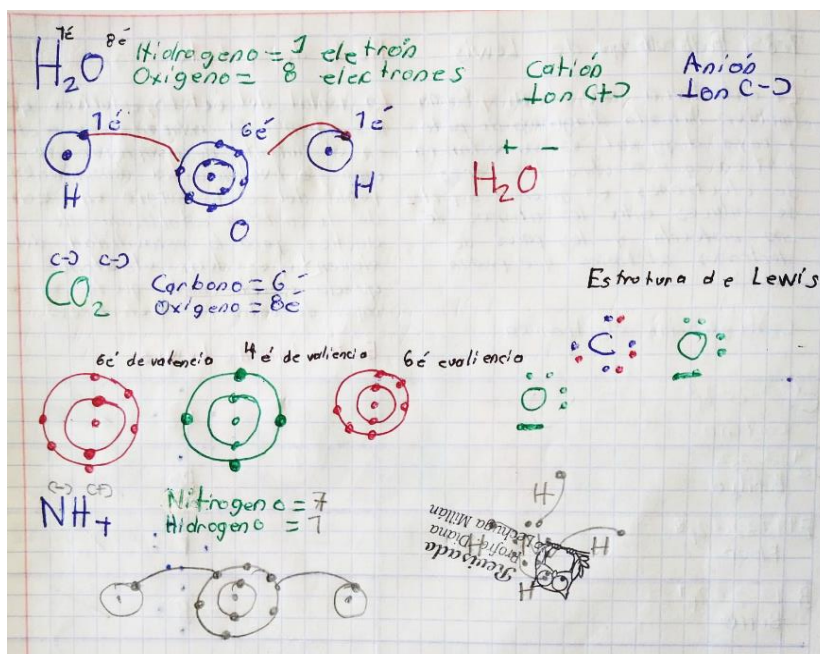 1é 8é
H₂O Hidrogeno = 1 eletrón
Oxígeno = 8 electrones
Catión Anión
Ion C+Ɔ Ion C-Ɔ
1é 6é 1é
H O H
+ -
H₂O
C-Ɔ C-Ɔ
CO₂ Carbono = 6é
Oxígeno = 8é
Estrutura de Lewis
C O
O
6é de valencio 4é de valiencio 6é evaliencio
(-) (+)
NH+ Nitrogeno = 7
Hidrogeno = 1
H
H H
H
Revisada
Profra. Diana
Lechuga Millán